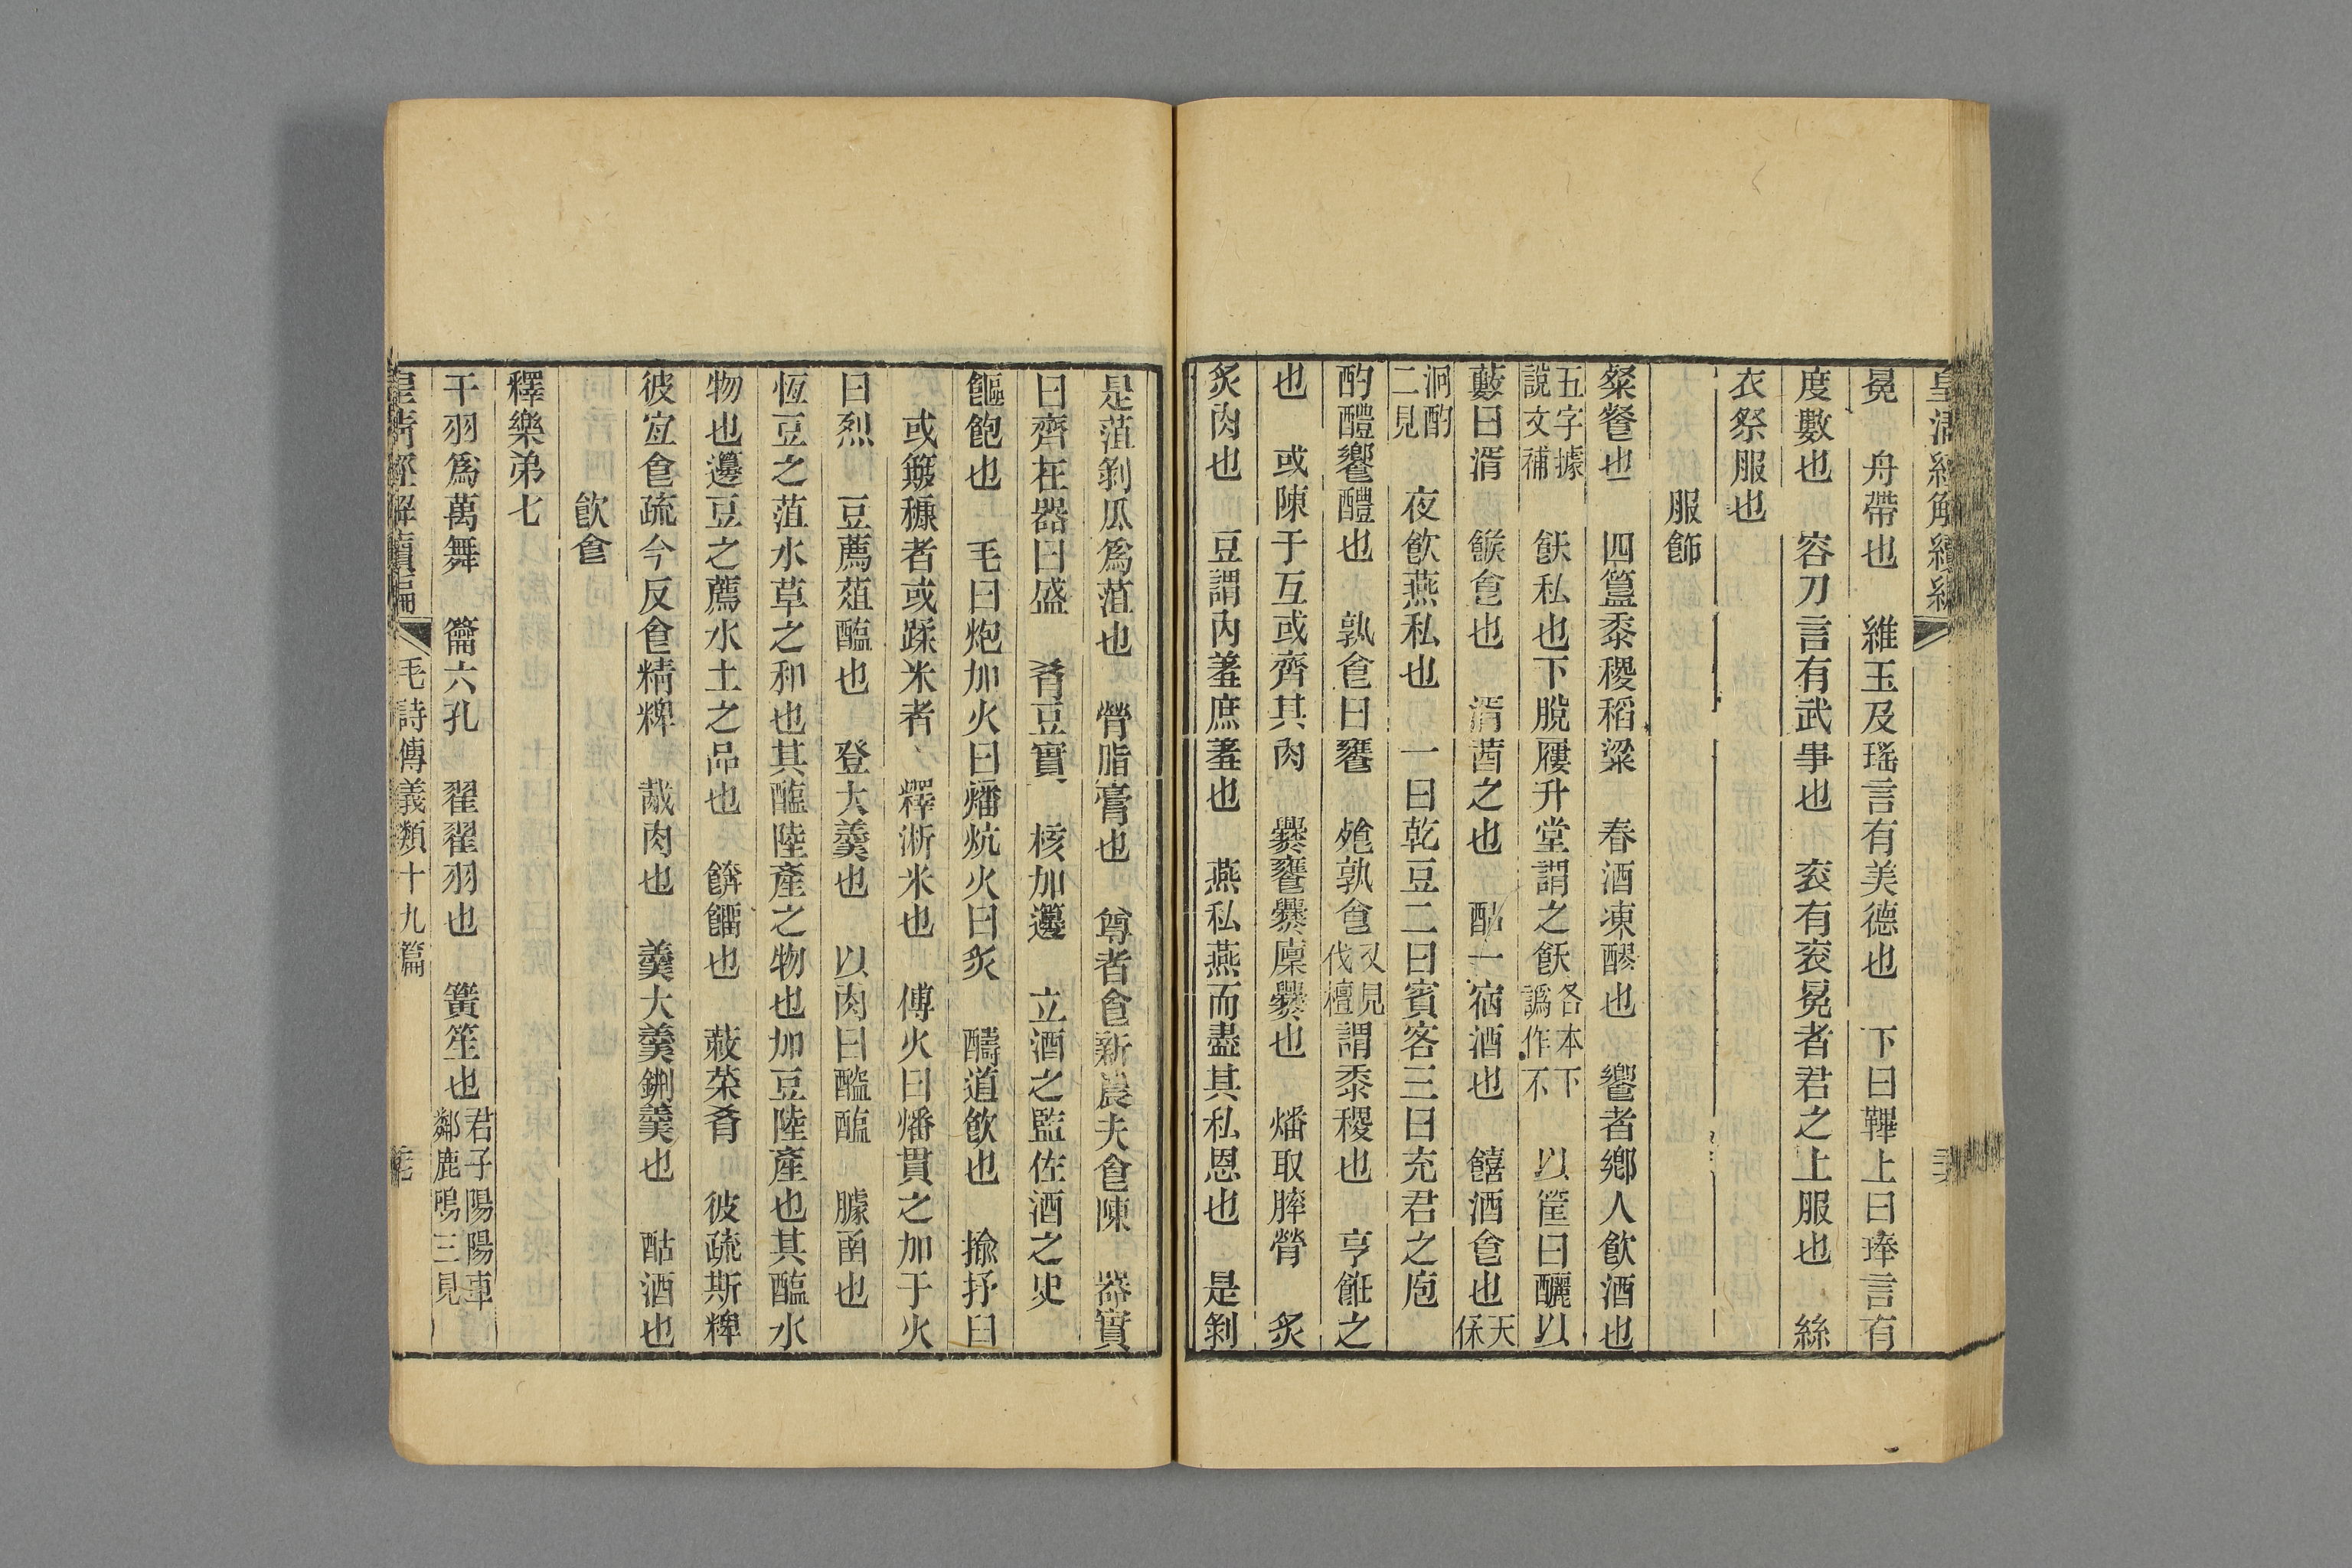 冕　舟帶也　維玉及瑤言有美德也　下曰鞞上曰琫言有
度數也　容刀言有武事也　衮有衮冕者君之上服也　絲
衣祭服也
服飾
粲餐也　四簋黍稷稻粱　春酒凍醪也　饗者鄉人飮酒也
五字據說文補　飫私也下脫屨升堂謂之飫各本下譌作不　以筐曰釃以
藪曰湑　餱食也　湑莤之也　酤一宿酒也　饎酒食也天保
泂酌二見　夜飮燕私也　一曰乾豆二曰賓客三曰充君之庖
酌醴饗醴也　孰食曰饔　飧孰食又見伐檀謂黍稷也　亨飪之
也　或陳于互或齊其肉　爨饔爨廩爨也　燔取膟膋　炙
炙肉也　豆謂內羞庶羞也　燕私燕而盡其私恩也　是剝
是菹剝瓜爲菹也　膋脂膏也　尊者食新農夫食陳　器實
曰齊在器曰盛　肴豆實　核加籩　立酒之監佐酒之史
饇飽也　毛曰炮加火曰燔炕火曰炙　醻道飮也　揄抒臼
或簸穅者或蹂米者　釋淅米也　傅火曰燔貫之加于火
曰烈　豆薦葅醢也　登大羹也　以肉曰醓醢　臄函也
恆豆之菹水草之和也其醢陸產之物也加豆陸產也其醢水
物也籩豆之薦水土之品也　餴餾也　蔌菜肴　彼疏斯粺
彼宜食疏今反食精粺　胾肉也　羹大羹鉶羹也　酤酒也
飮食
釋樂弟七
干羽爲萬舞　籥六孔　翟翟羽也　簧笙也君子陽陽車鄰鹿鳴三見
皇清經解續編　毛詩傳義類十九篇